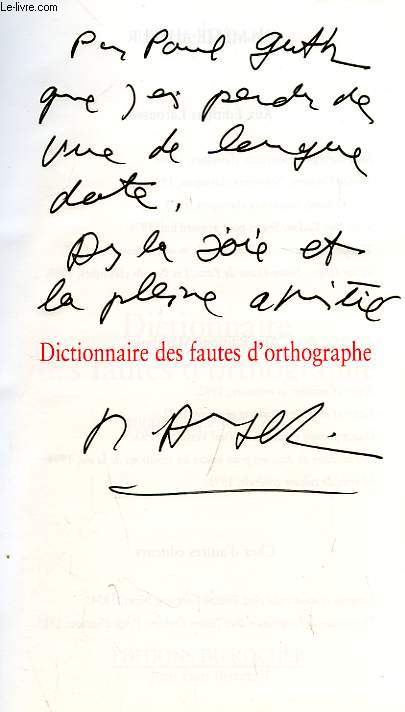 © Le-livre.com
Pour Paul Guth
que j'ai perdu de
vue de longue
date,
Avec la joie et
la pleine amitié
Dictionnaire des fautes d'orthographe